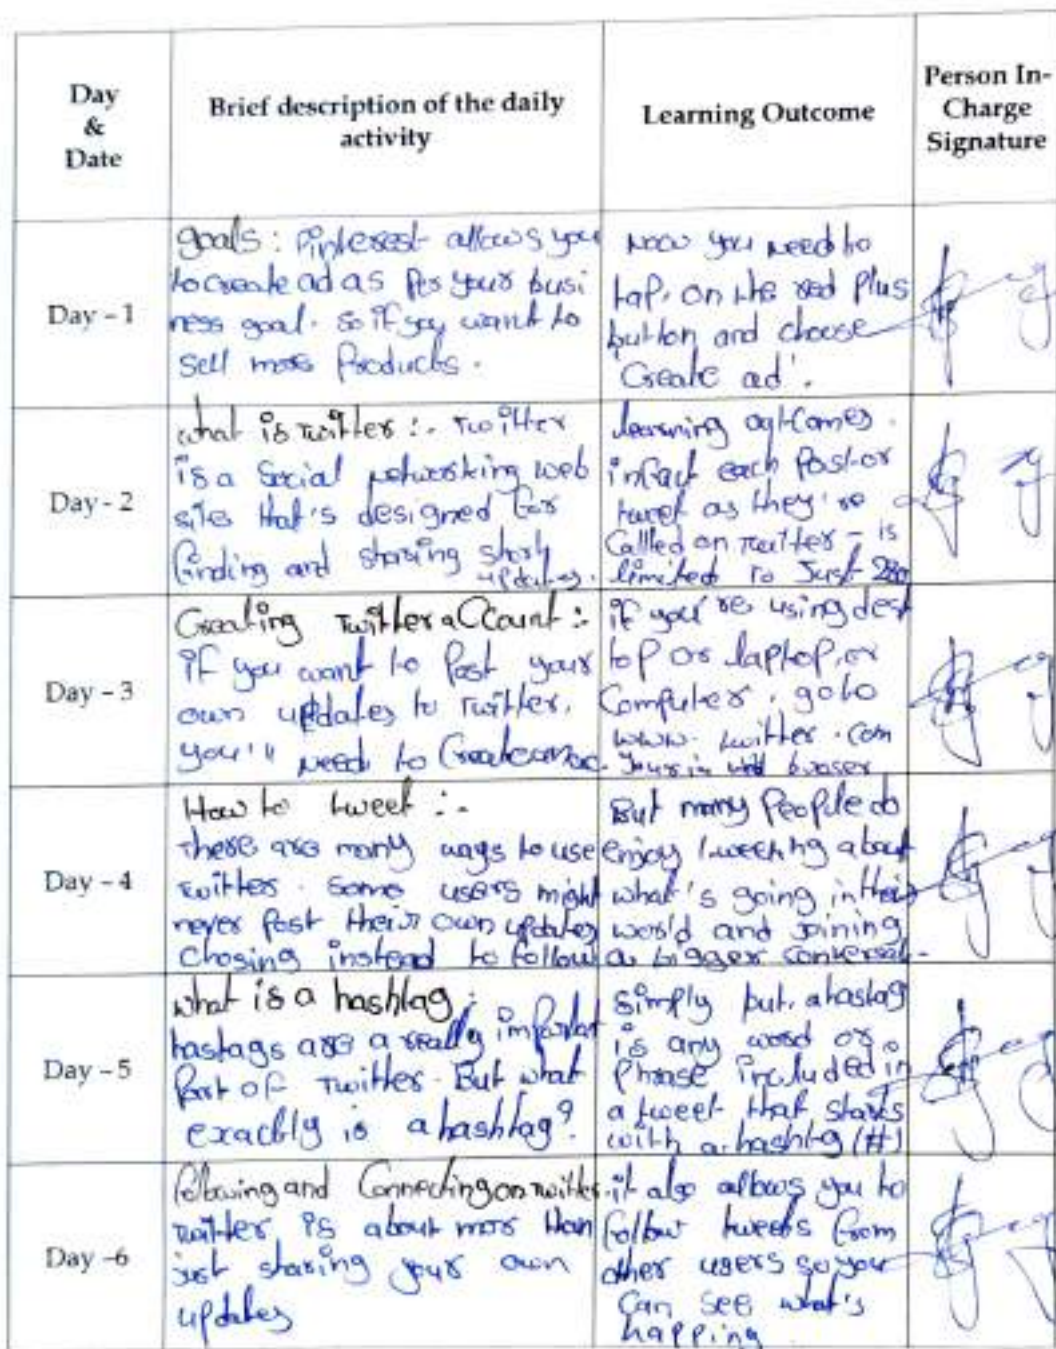 Day
&
Date
Brief description of the daily
activity
Learning Outcome
Person In-
Charge
Signature
Day – 1
goals: Pinterest allows you
to create ad as Per your busi
ness goal. so if you want to
sell more Products.
Now you need to
tap, on the red Plus
button and choose
'Create ad'.
Day - 2
what is Twitter :- Twitter
is a Social networking web
sites that's designed for
finding and sharing short
updates.
learning outComes.
infact each Post or
tweet as they're
Callled on Twitter – is
limited to Just 280
Day – 3
Creating Twitter aCCount :-
if you want to Post your
own updates to Twitter.
you'll need to Create
if you're using desk
top or laptop, or
Computer, goto
www. twitter .com
Day – 4
How to tweet :-
there are many ways to use
twitter. Some users might
never Post their own updates
Chosing instead to follow
But many People do
enjoy tweeting about
what's going in their
world and Joining
a bigger
Day – 5
what is a hashtag :
hastags are a really important
Part of Twitter. But what
exactly is a hashtag?
Simply but, a hastag
is any word or
Phrase included in
a tweet that starts
with a (#)
Day –6
following and Connecting on twitter.
twitter is about mor than
just sharing your own
updates
it also allows you to
follow tweets from
other users so you
Can see what's
happing